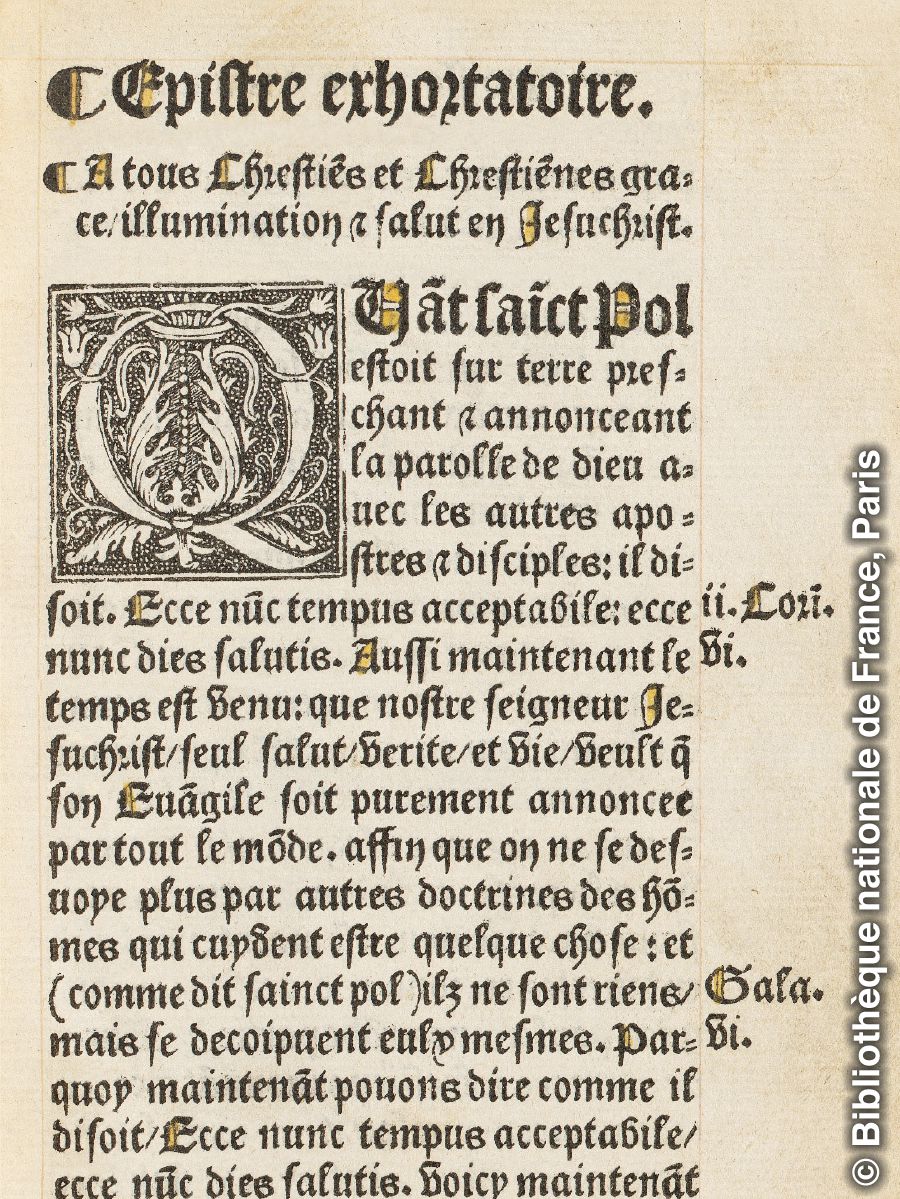 ¶ Epistre exhortatoire.
¶ A tous Chrestiẽs et Chrestiẽnes gra⸗
ce/illumination ⁊ salut en Jesuchrist.
QUãt saĩct Pol
estoit sur terre pres⸗
chant ⁊ annonceant
la parolle de dieu a⸗
uec les autres apo⸗
stres ⁊ disciples: il di⸗
soit. Ecce nũc tempus acceptabile: ecce
ii. Cori̅.
nunc dies salutis. Aussi maintenant le
vi.
temps est venu: que nostre seigneur Je⸗
suchrist/seul salut/verite/et vie/veult q̃
son Euãgile soit purement annoncee
par tout le mõde. affin que on ne se des⸗
uoye plus par autres doctrines des hõ⸗
mes qui cuydent estre quelque chose : et
(comme dit sainct pol) ilz ne sont riens/
Gala.
mais se decoipuent eulx mesmes. Par⸗
vi.
quoy maintenãt pouons dire comme il
disoit/Ecce nunc tempus acceptabile/
ecce nũc dies salutis. voicy maintenãt
© Bibliothèque nationale de France, Paris